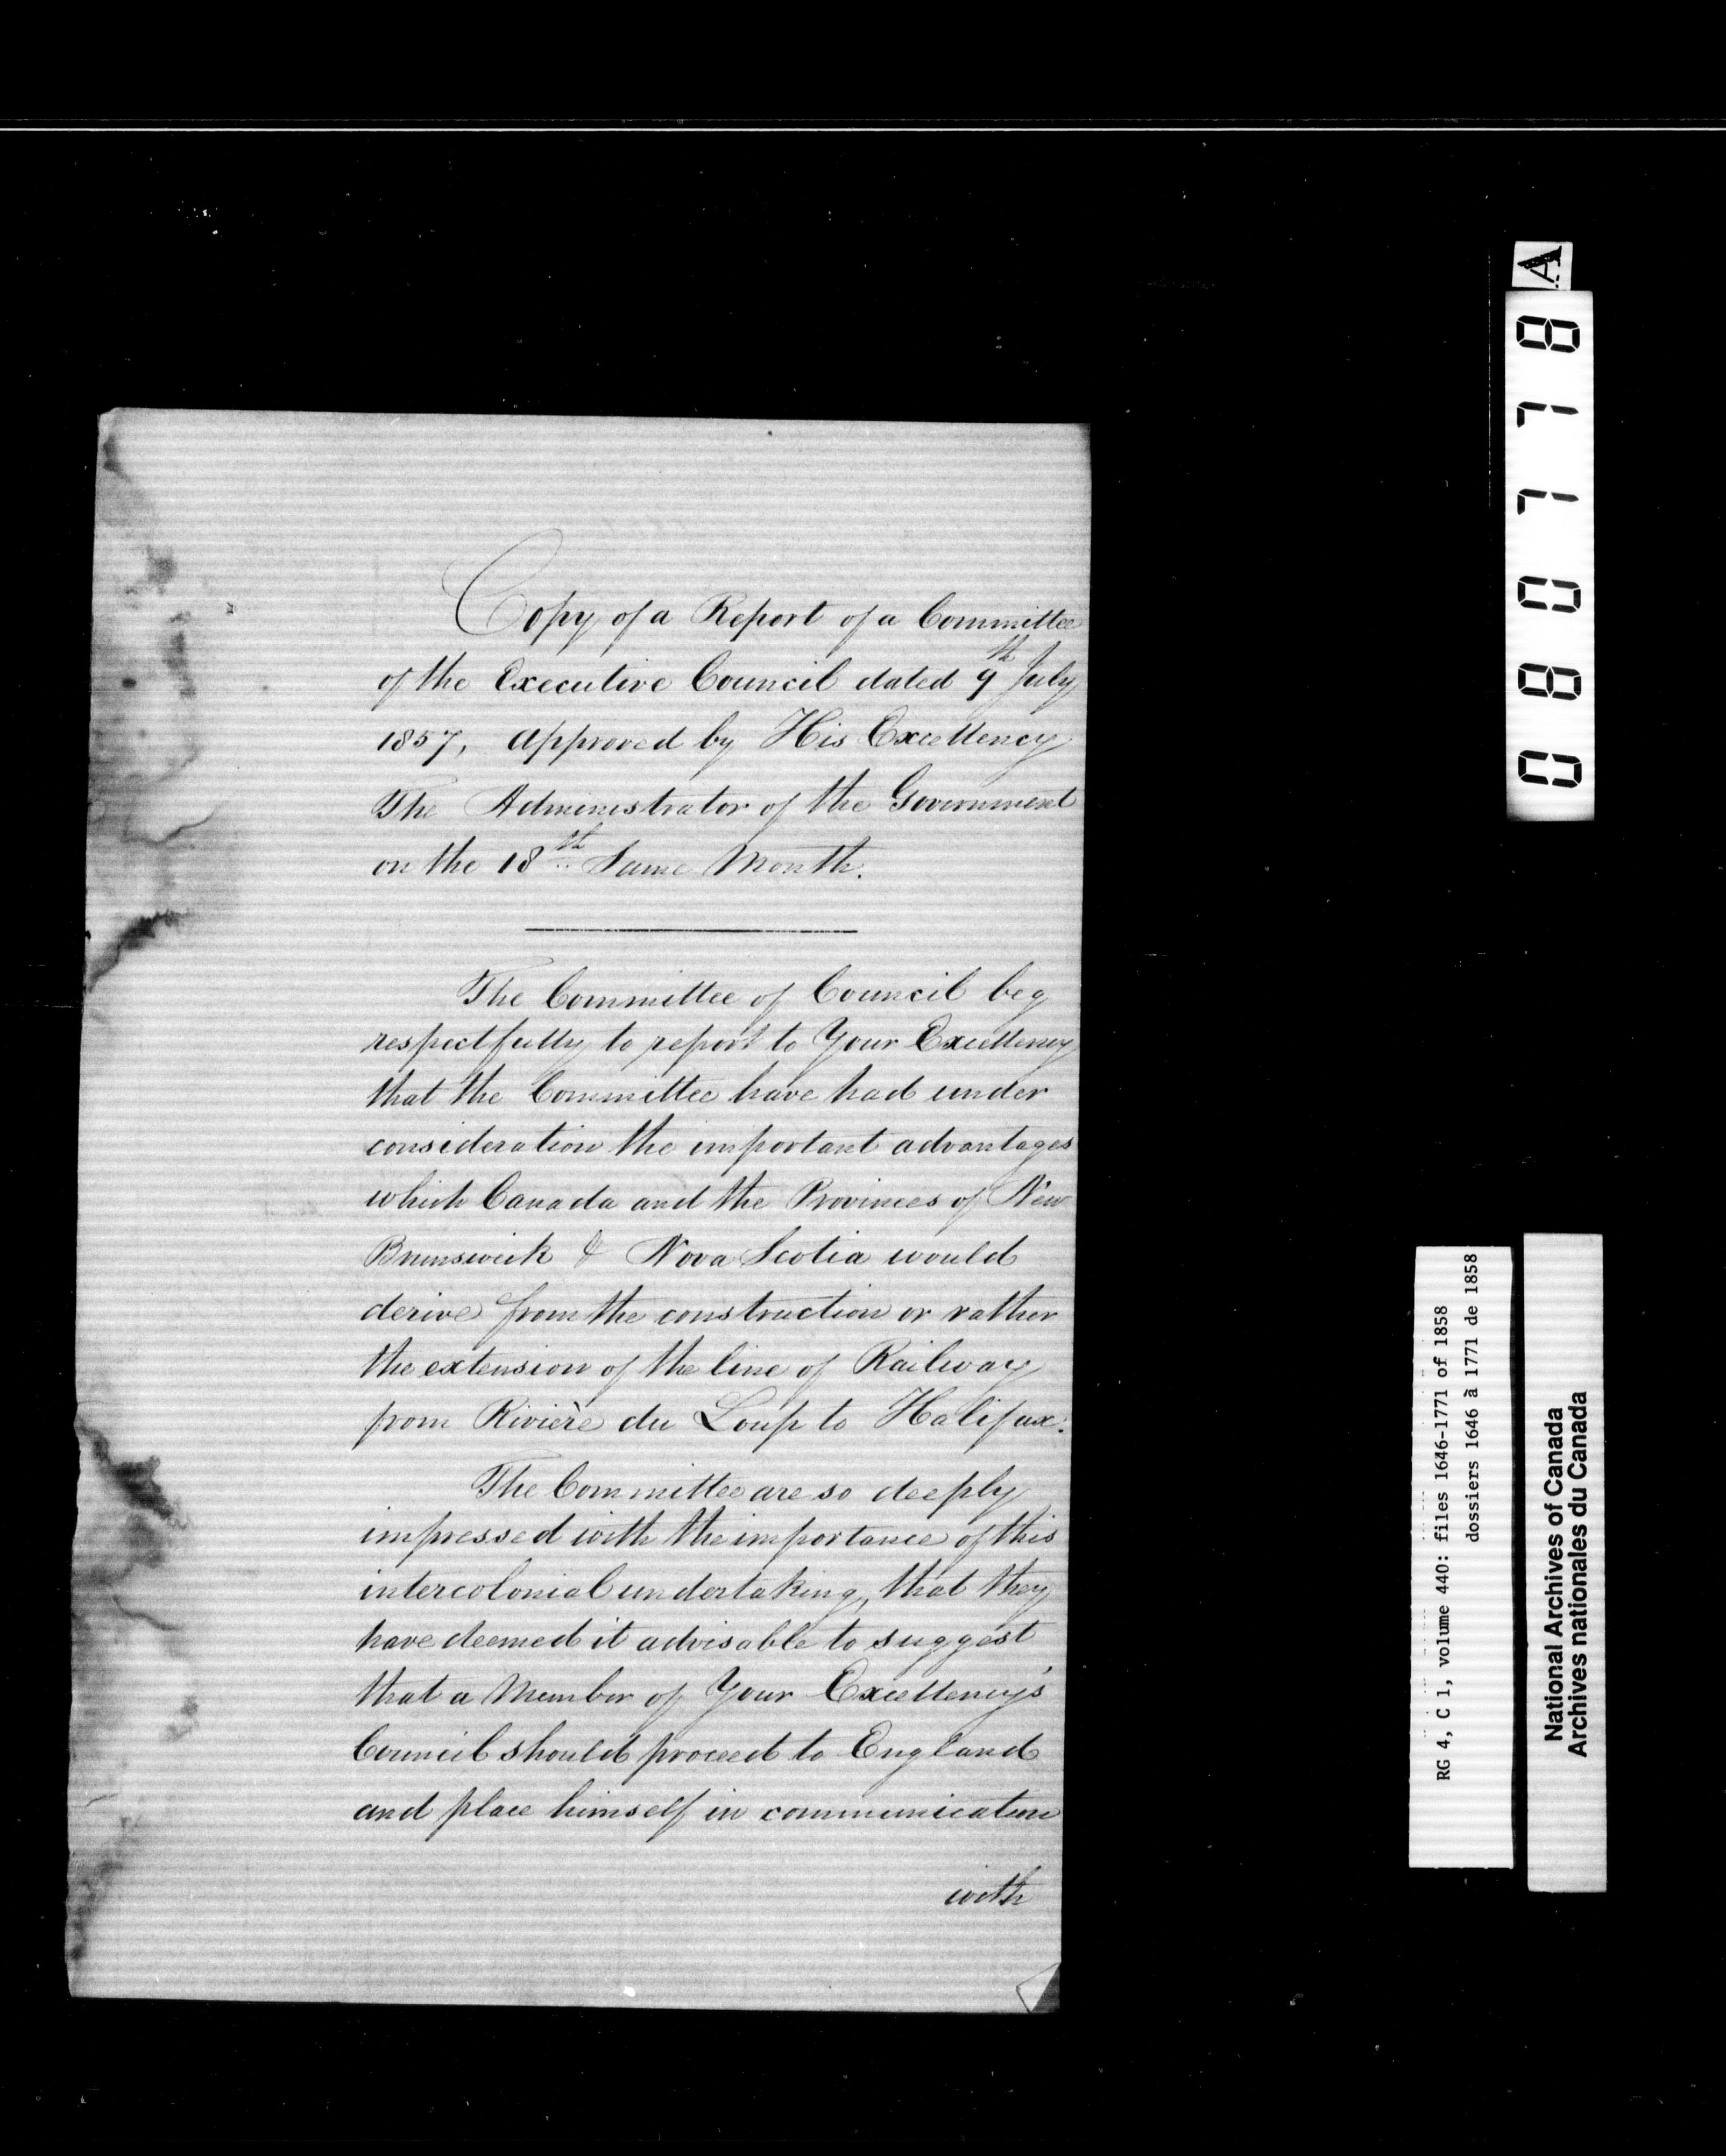 Copy of a Report of a Committee
of the Executive Council dated 9th July
1857, Approved by His Excellency
The Administrator of the Government
on the 18th Same Month.
The Committee of Council beg
respectfully to report to Your Excellency
that the Committee have had under
consideration the important advantages
which Canada and the Provinces of New
Brunswick & Nova Scotia would
derive from the construction or rather
the extension of the line of Railway
from Rivière du Loup to Halifax.
The Committee are so deeply
impressed with the importance of this
intercolonial undertaking, that they
have deemed it advisable to suggest
that a Member of Your Excellency's
Council should proceed to England
and place himself in communication
with
080778 A
RG 4, C 1, volume 440: files 1646-1771 of 1858
dossiers 1646 à 1771 de 1858
National Archives of Canada
Archives nationales du Canada